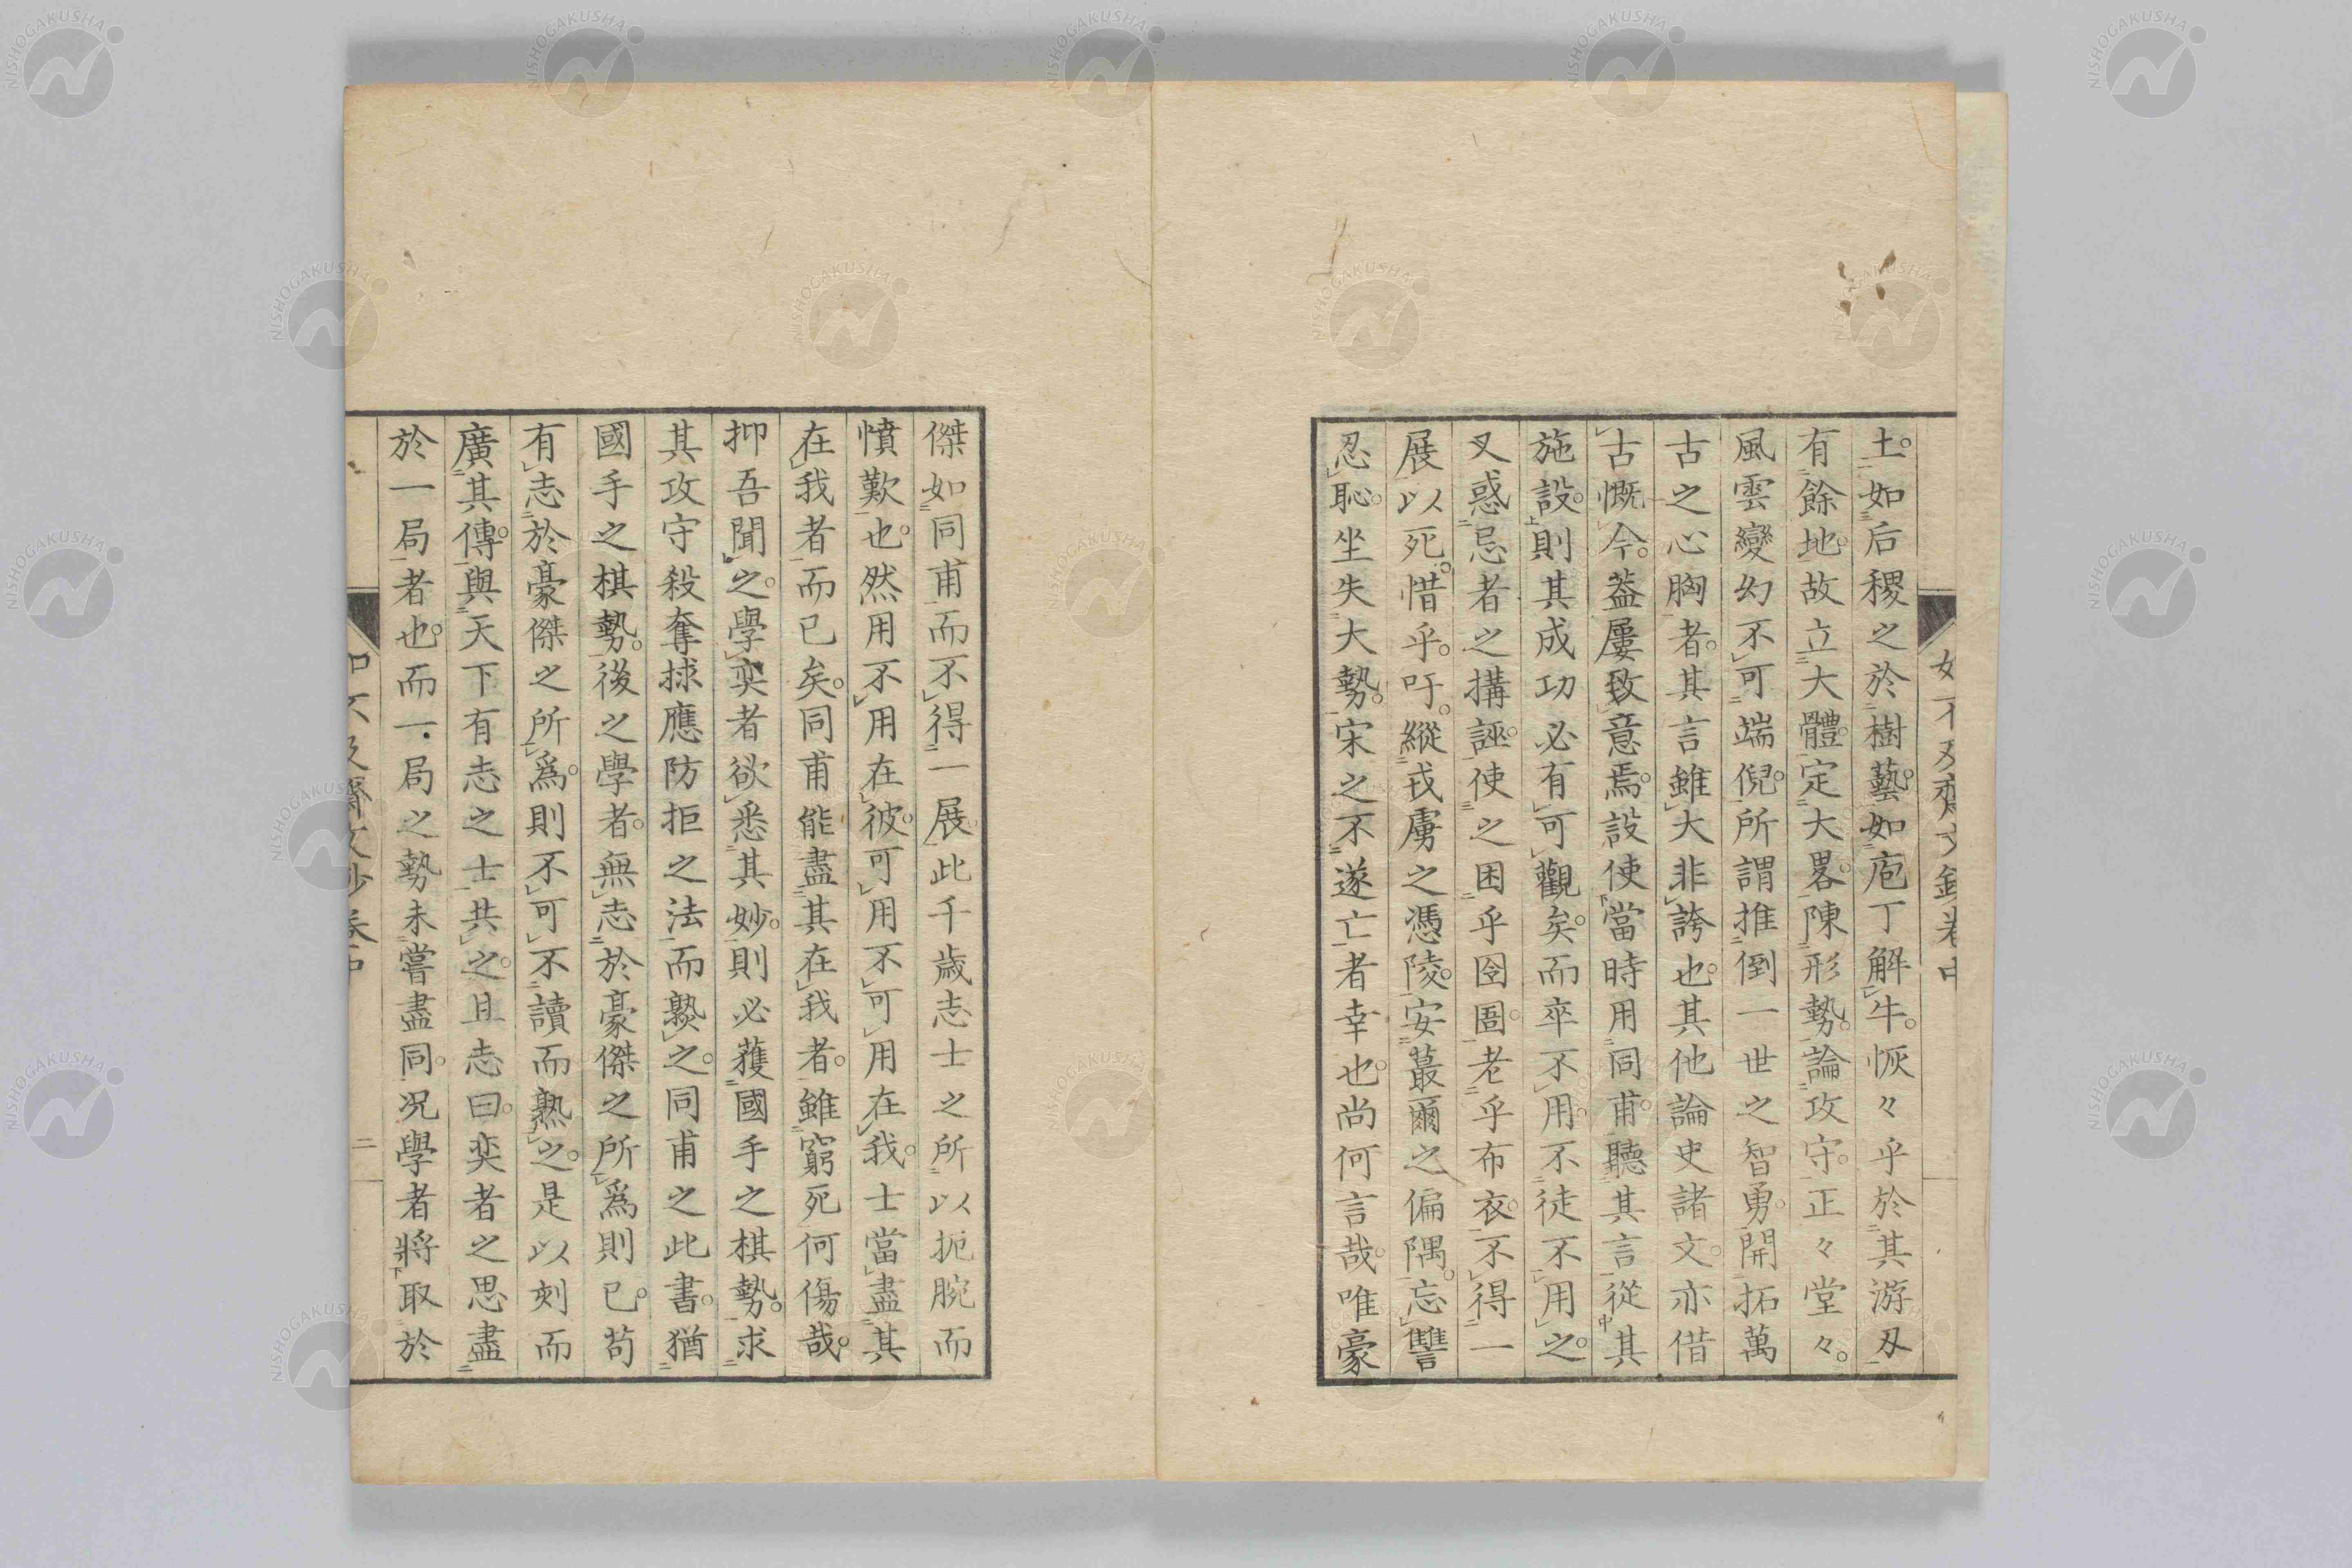 土。如后稷之於樹藝。如庖丁解牛。恢々乎於其游刄
有餘地。故立大體。定大畧。陳形勢。論攻守。正々堂々。
風雲變幻不可端倪。所謂推倒一世之智勇。開拓萬
古之心胸者。其言雖大非誇也。其他論史諸文。亦借
古慨今。葢屢致意焉。設使當時用同甫。聽其言從其
施設。則其成功必有可觀矣。而卒不用。不徒不用之。
又惑忌者之搆誣。使之困乎囹圄。老乎布衣。不得一
展以死。惜乎。吁。縱戎虜之憑陵。安蕞爾之偏隅。忘讐
忍恥。坐失大勢。宋之不遂亡者幸也。尚何言哉。唯豪
傑如同甫而不得一展。此千歳志士之所以扼腕而
憤歎也。然用不用在彼。可用不可用在我。士當盡其
在我者而已矣。同甫能盡其在我者。雖窮死何傷哉。
抑吾聞之。學奕者欲悉其妙。則必蒦國手之棋勢。求
其攻守殺奪捄應防拒之法而熟之。同甫之此書。猶
國手之棋勢。後之學者。無志於豪傑之所爲則已。苟
有志於豪傑之所爲。則不可不讀而熟之。是以刻而
廣其傳。與天下有志之士共之。且志曰。奕者之思盡
於一局者也。而一局之勢未嘗盡同。况學者將取於
如不及齋文鈔卷中
二
NISHOGAKUSHA